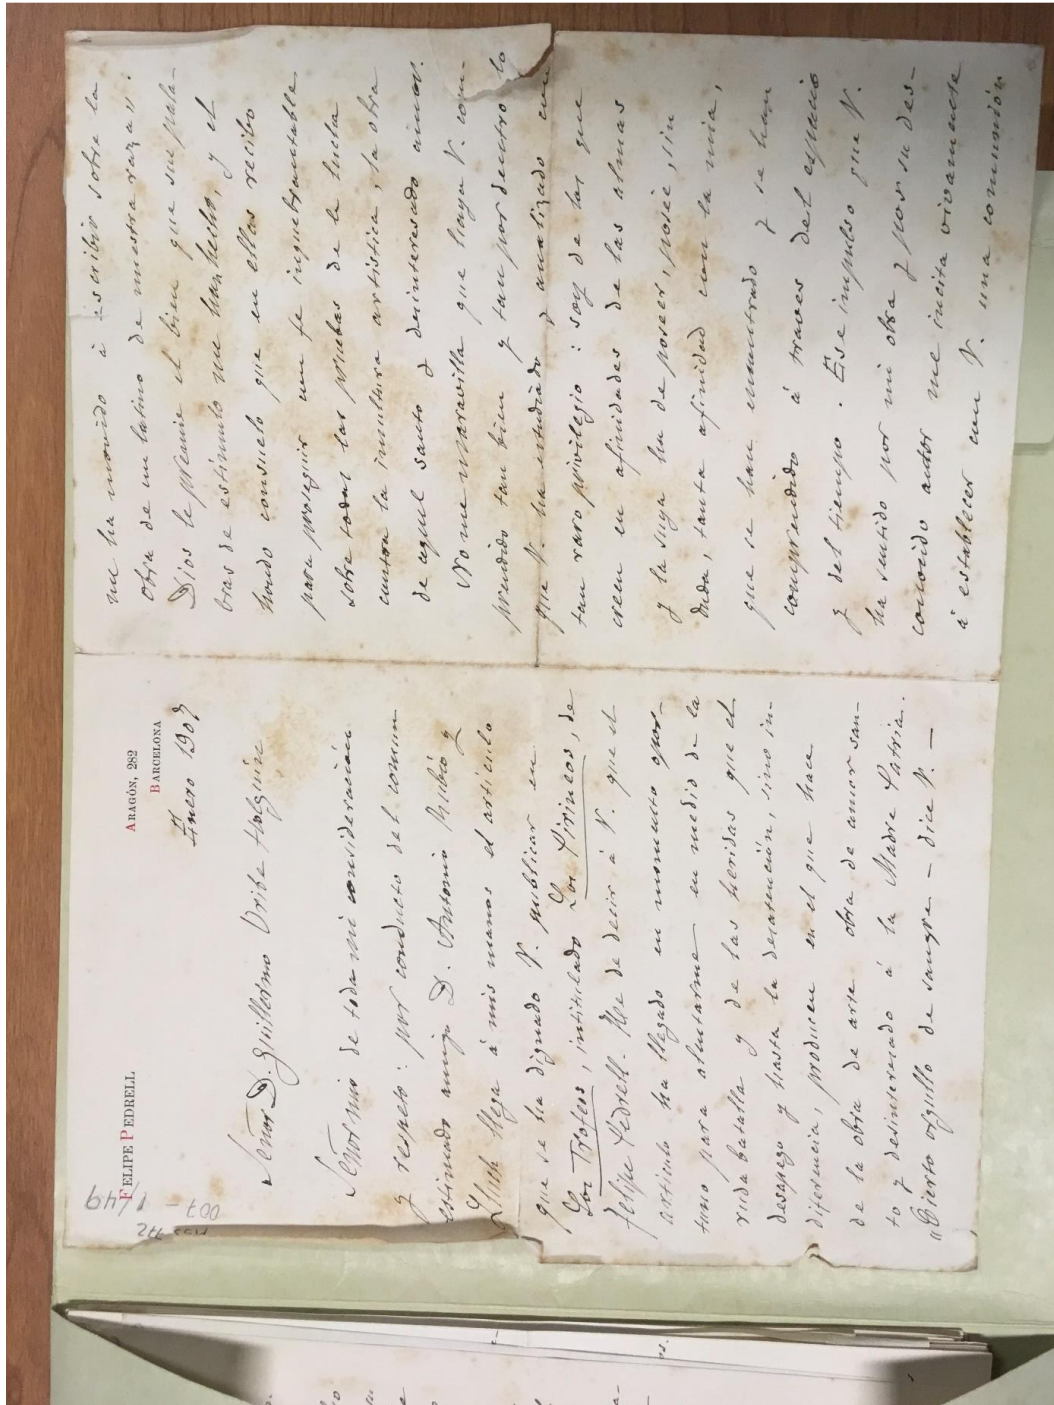 FELIPE PEDRELL
ARAGÓN, 282
BARCELONA
Enero 1907
Señor D. Guillermo Uribe Holguín
Señor mio de toda mi consideración
y respeto: por conducto del comun
estimado amigo D. Antonio Rubió y
Lluch llega á mis manos el articulo
que se ha dignado V. publicar en
Los Trofeos, intitulado Los Pirineos, de
Felipe Pedrell. He de decir á V. que el
articulo ha llegado en momento opor-
tuno para alentarme en medio de la
ruda batalla y de las heridas que el
desapego y hasta la desatención, sino in-
diferencia, producen en el que hace
de la obra de arte obra de amor san-
to y desinteresado á la Madre Patria.
"Cierto orgullo de sangre – dice V. –
me ha movido á escribir sobre la
obra de un latino de nuestra raza".
Dios le premie el bien que sus pala-
bras de estimulo me han hecho, y el
hondo consuelo que en ellas recibo
para proseguir con fe inquebrantable
sobre todas las pruebas de la lucha
contra la incultura artistica, la obra
de aquel santo y desinteresado amor.
No me maravilla que haya V. com-
prendido tan bien y tan por dentro lo
que V. ha estudiado y analizado con
tan raro privilegio: soy de los que
creen en afinidades de las almas
y la suya ha de poseer, posée, sin
duda, tanta afinidad con la mia,
que se han encontrado y se han
comprendido á traves del espacio
y del tiempo. Ese impulso que V.
ha sentido por mi obra y por su des-
conocido autor me incita vivamente
á establecer con V. una comunión
007- 1/49